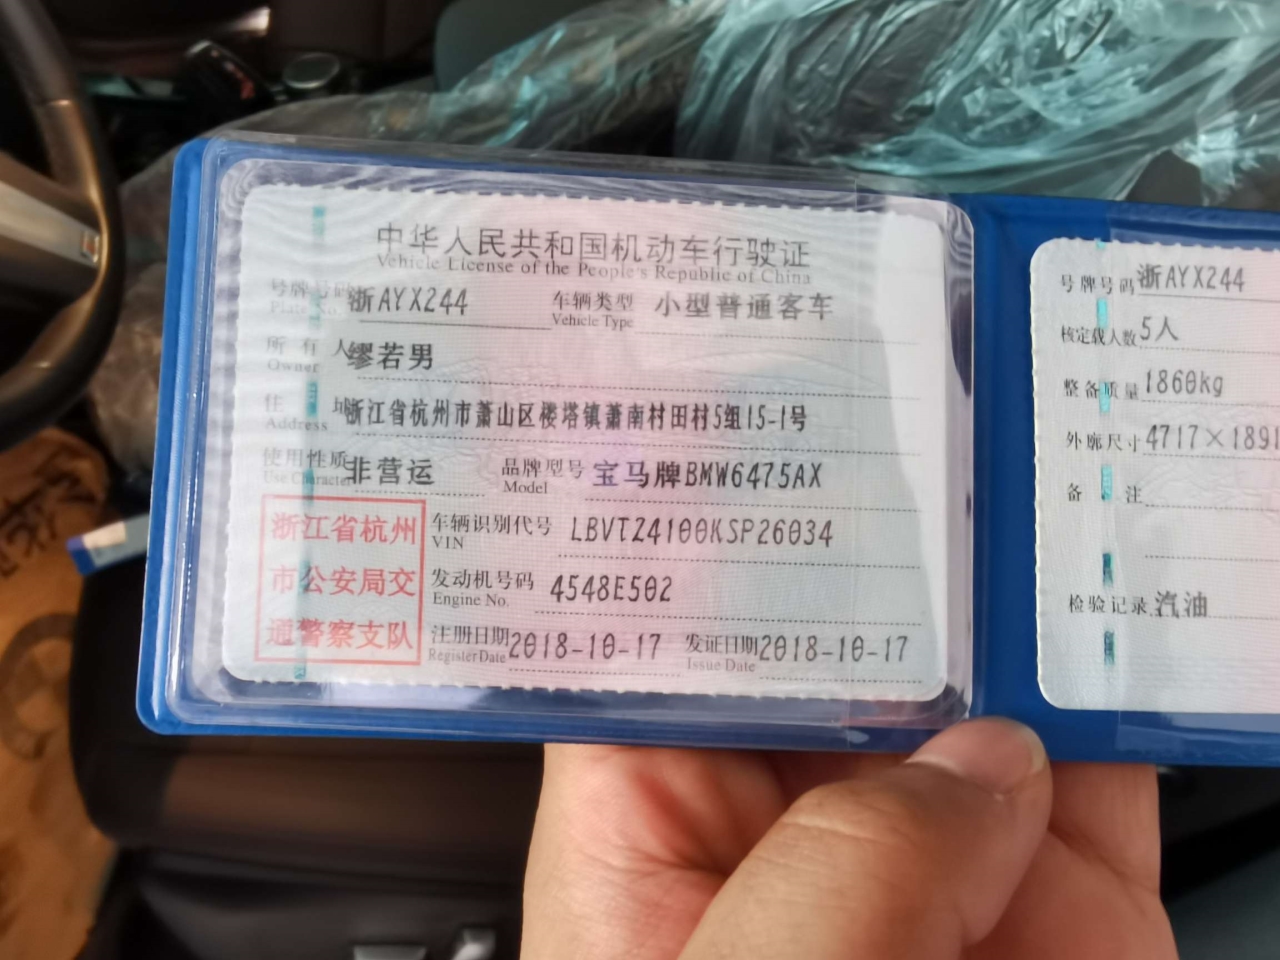 中华人民共和国机动车行驶证
Vehicle License of the People's Republic of China
号牌号码 浙AYX244 车辆类型 小型普通客车
Plate No. Vehicle Type
所有人 缪若男
Owner
住址 浙江省杭州市萧山区楼塔镇萧南村田村5组15-1号
Address
使用性质 非营运 品牌型号 宝马牌BMW6475AX
Use Character Model
浙江省杭州
市公安局交
通警察支队
车辆识别代号 LBVTZ4100KSP26034
VIN
发动机号码 4548E502
Engine No.
注册日期 2018-10-17 发证日期 2018-10-17
Register Date Issue Date
号牌号码 浙AYX244
核定载人数 5人
整备质量 1860kg
外廓尺寸 4717×1891
备注
检验记录 汽油